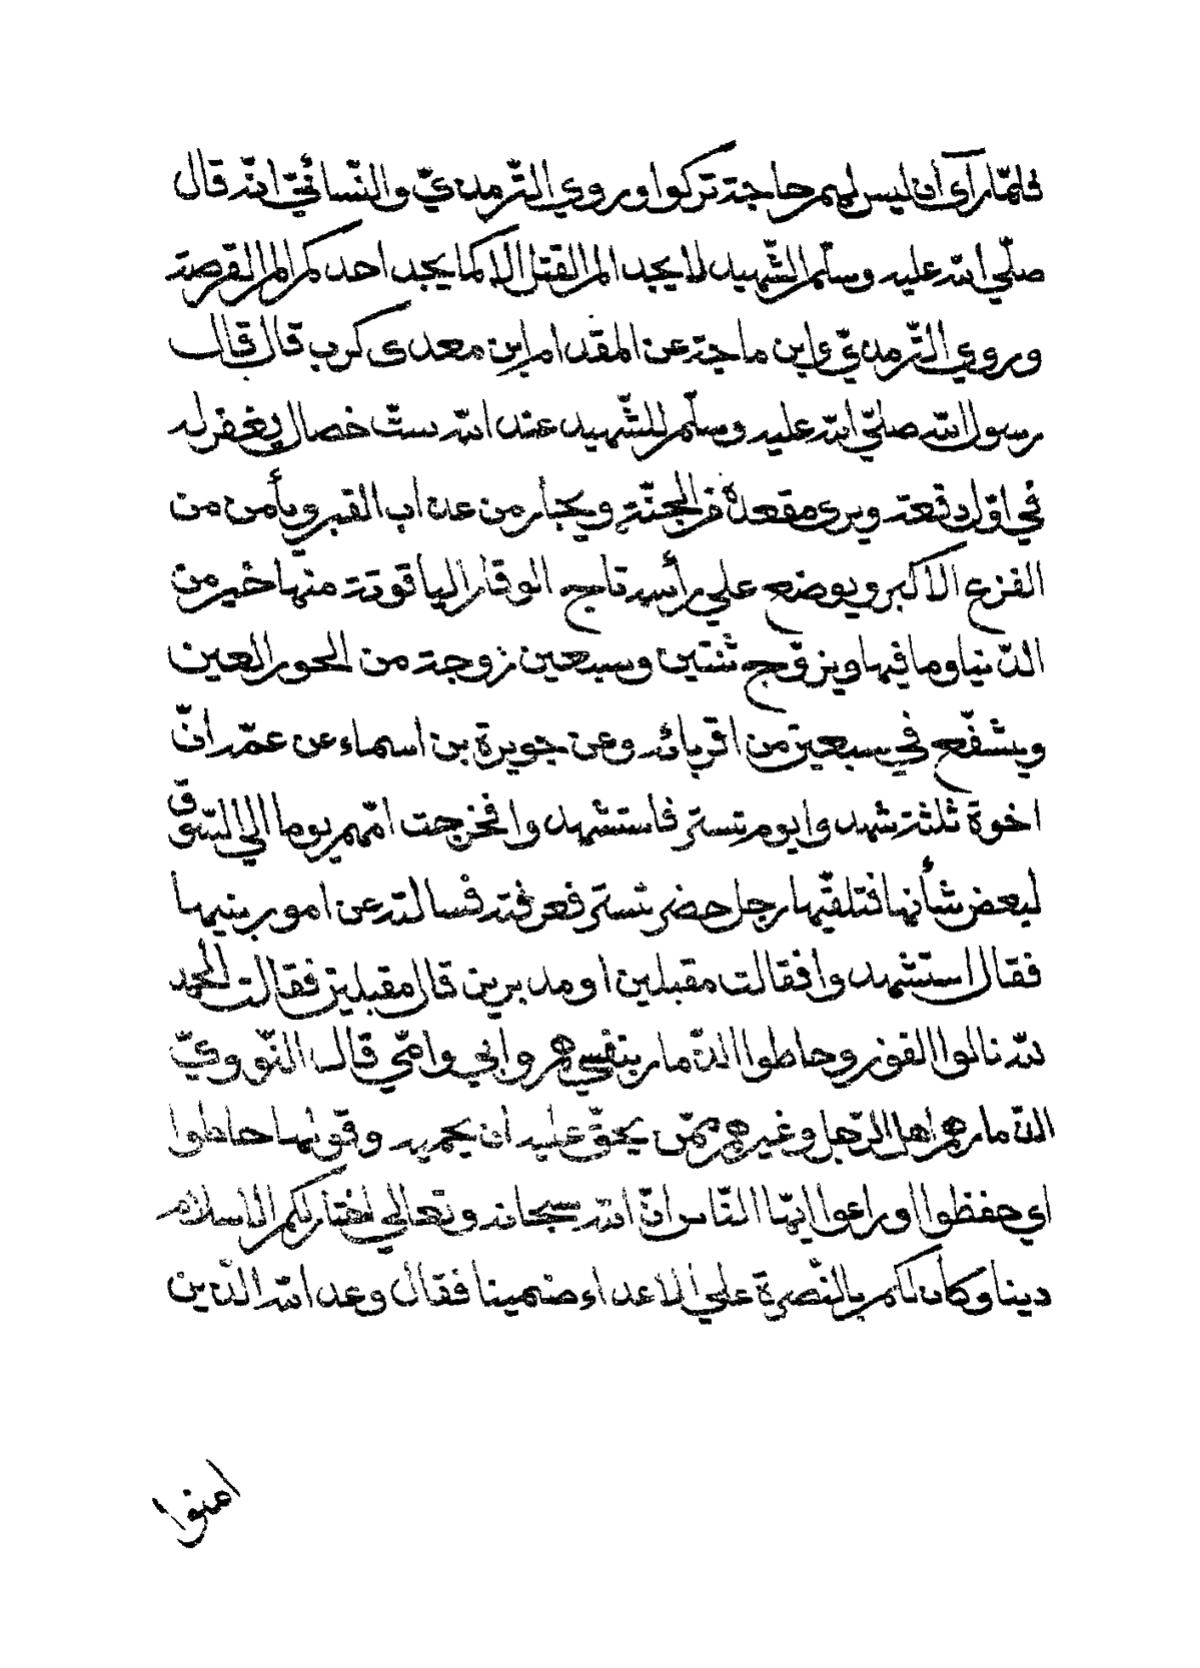 فلمّا رآى ان ليس لهم حاجة تركوا وروي التّرمذيّ والنّسائيّ انّه قال
صلّي الله عليه وسلّم الشّهيد لا يجد الم القتل الا كما يجد احدكم الم القرصة
وروي التّرمذيّ وابن ماجة عن المقدام ابن معدى كرب قال قال
رسول الله صلّي الله عليه وسلّم للشّهيد عند الله ستّ خصال يغفر له
في اوّل دفعة ويرى مقعده من الجنّة ويجار من عذاب القبر ويأمن من
الفزع الاكبر ويوضع علي رأسه تاج الوقار الياقوتة منها خير من
الدّنيا وما فيها ويزوّج ثنتين وسبعين زوجة من الحور العين
ويشفّع في سبعين من اقربائه وعن جويرة بن اسماء عن عمّه انّ
اخوة ثلثة شهدوا يوم تستر فاستشهدوا فخرجت امّهم يوما الي السّوق
لبعض شأنها فتلقّيها رجل حضر تستر فعرفته فسالته عن امور بنيها
فقال استشهدوا فقالت مقبلين او مدبرين قال مقبلين فقالت الحمد
لله نالوا الفوز وحاطوا الذّمار بنفسي هم وابي وامّي قال النّوويّ
الذّمار هم اهل الرّجل وغيرهم ممّن يحقّ عليه ان يحميه وقولها حاطوا
اي حفظوا وراعوا ايّها النّاس انّ الله سبحانه وتعالي اختار لكم الاسلام
دينا وكان لكم بالنّصرة علي الاعداء ضمينا فقال وعد الله الذين
امنوا